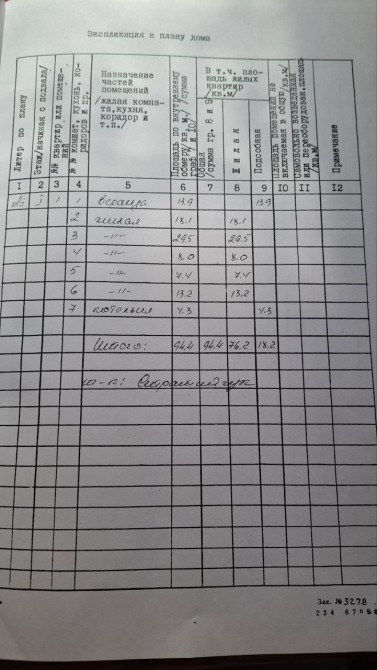 Экспликация к плану дома
Литер по плану
Этаж/начиная с подвала/
№№ квартир или помеще-
ний
№№ комнат, кухонь, ко-
ридоров и пр.
Назначение
частей
помещений
/жилая комна-
та,кухня,
коридор и
т.п./
Площадь по внутреннему
обмеру/кв.м./ /сумма
граф 7 и 10/
В т.ч. пло-
щадь жилых
квартир
/кв.м/
Общая
/сумма гр. 8 и 9/
Жилая
Подсобная
Площадь помещений не
включаемая в общую/кв.м/
Самовольно возведенная
или переоборудован.площадь
/кв.м/
Примечание
1 2 3 4 5 6 7 8 9 10 11 12
1 1 1 веранда 13.9 13.9
2 жилая 18.1 18.1
3 -"- 29.5 29.5
4 -"- 8.0 8.0
5 -"- 7.4 7.4
6 -"- 13.2 13.2
7 котельня 4.3 4.3
Итого: 94.4 94.4 76.2 18.2
Зак. №3278